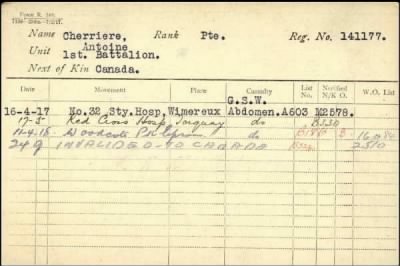 Name Cherriere, Rank Pte. Reg. No. 141177.
Antoine
Unit 1st. Battalion.
Next of Kin Canada.
Date Movement Place Casualty List Notified N/K O. W.O. List
G.S.W.
16-4-17 No.32 Sty.Hosp, Wimereux Abdomen. A603 M2578.
17-5 Red Cross Hosp, Torquay do B350
11-4-18 Woodcote Pk Epsom do B
24 9 INVALIDED TO CANADA